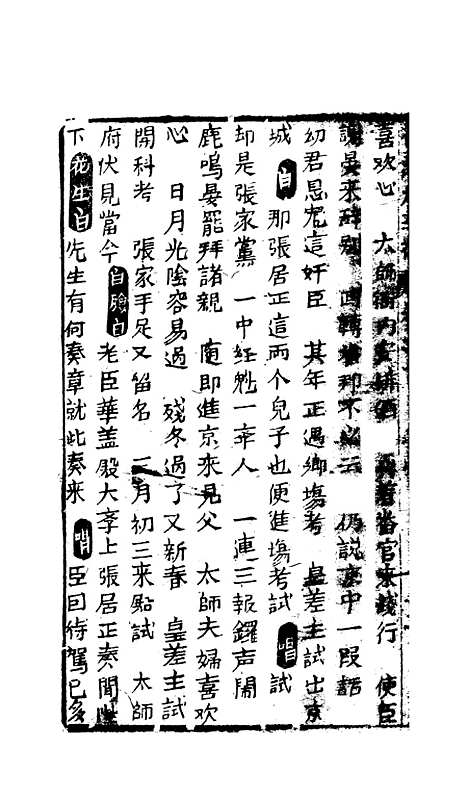 喜欢心 太師衙內 官來餞行 使臣
來 不必云 仍說京中一叚話
幼君恩寵這奸臣 其年正遇鄉塲考 皇差主試出京
城 白 那張居正這兩个兒子也便進塲考試 唱 試
却是張家黨 一中經魁一辛人 一連三報鑼声鬧
鹿鳴晏罷拜諸親 随即進京來見父 太師夫婦喜欢
心 日月光陰容易過 殘冬過了又新春 皇差主試
開科考 張家手足又留名 三月初三來點試 太師
府伏見當今 白臉白 老臣華盖殿大孛上張居正奏聞陛
下 花生白 先生有何奏章就此奏來 唱 臣囙侍駕已多